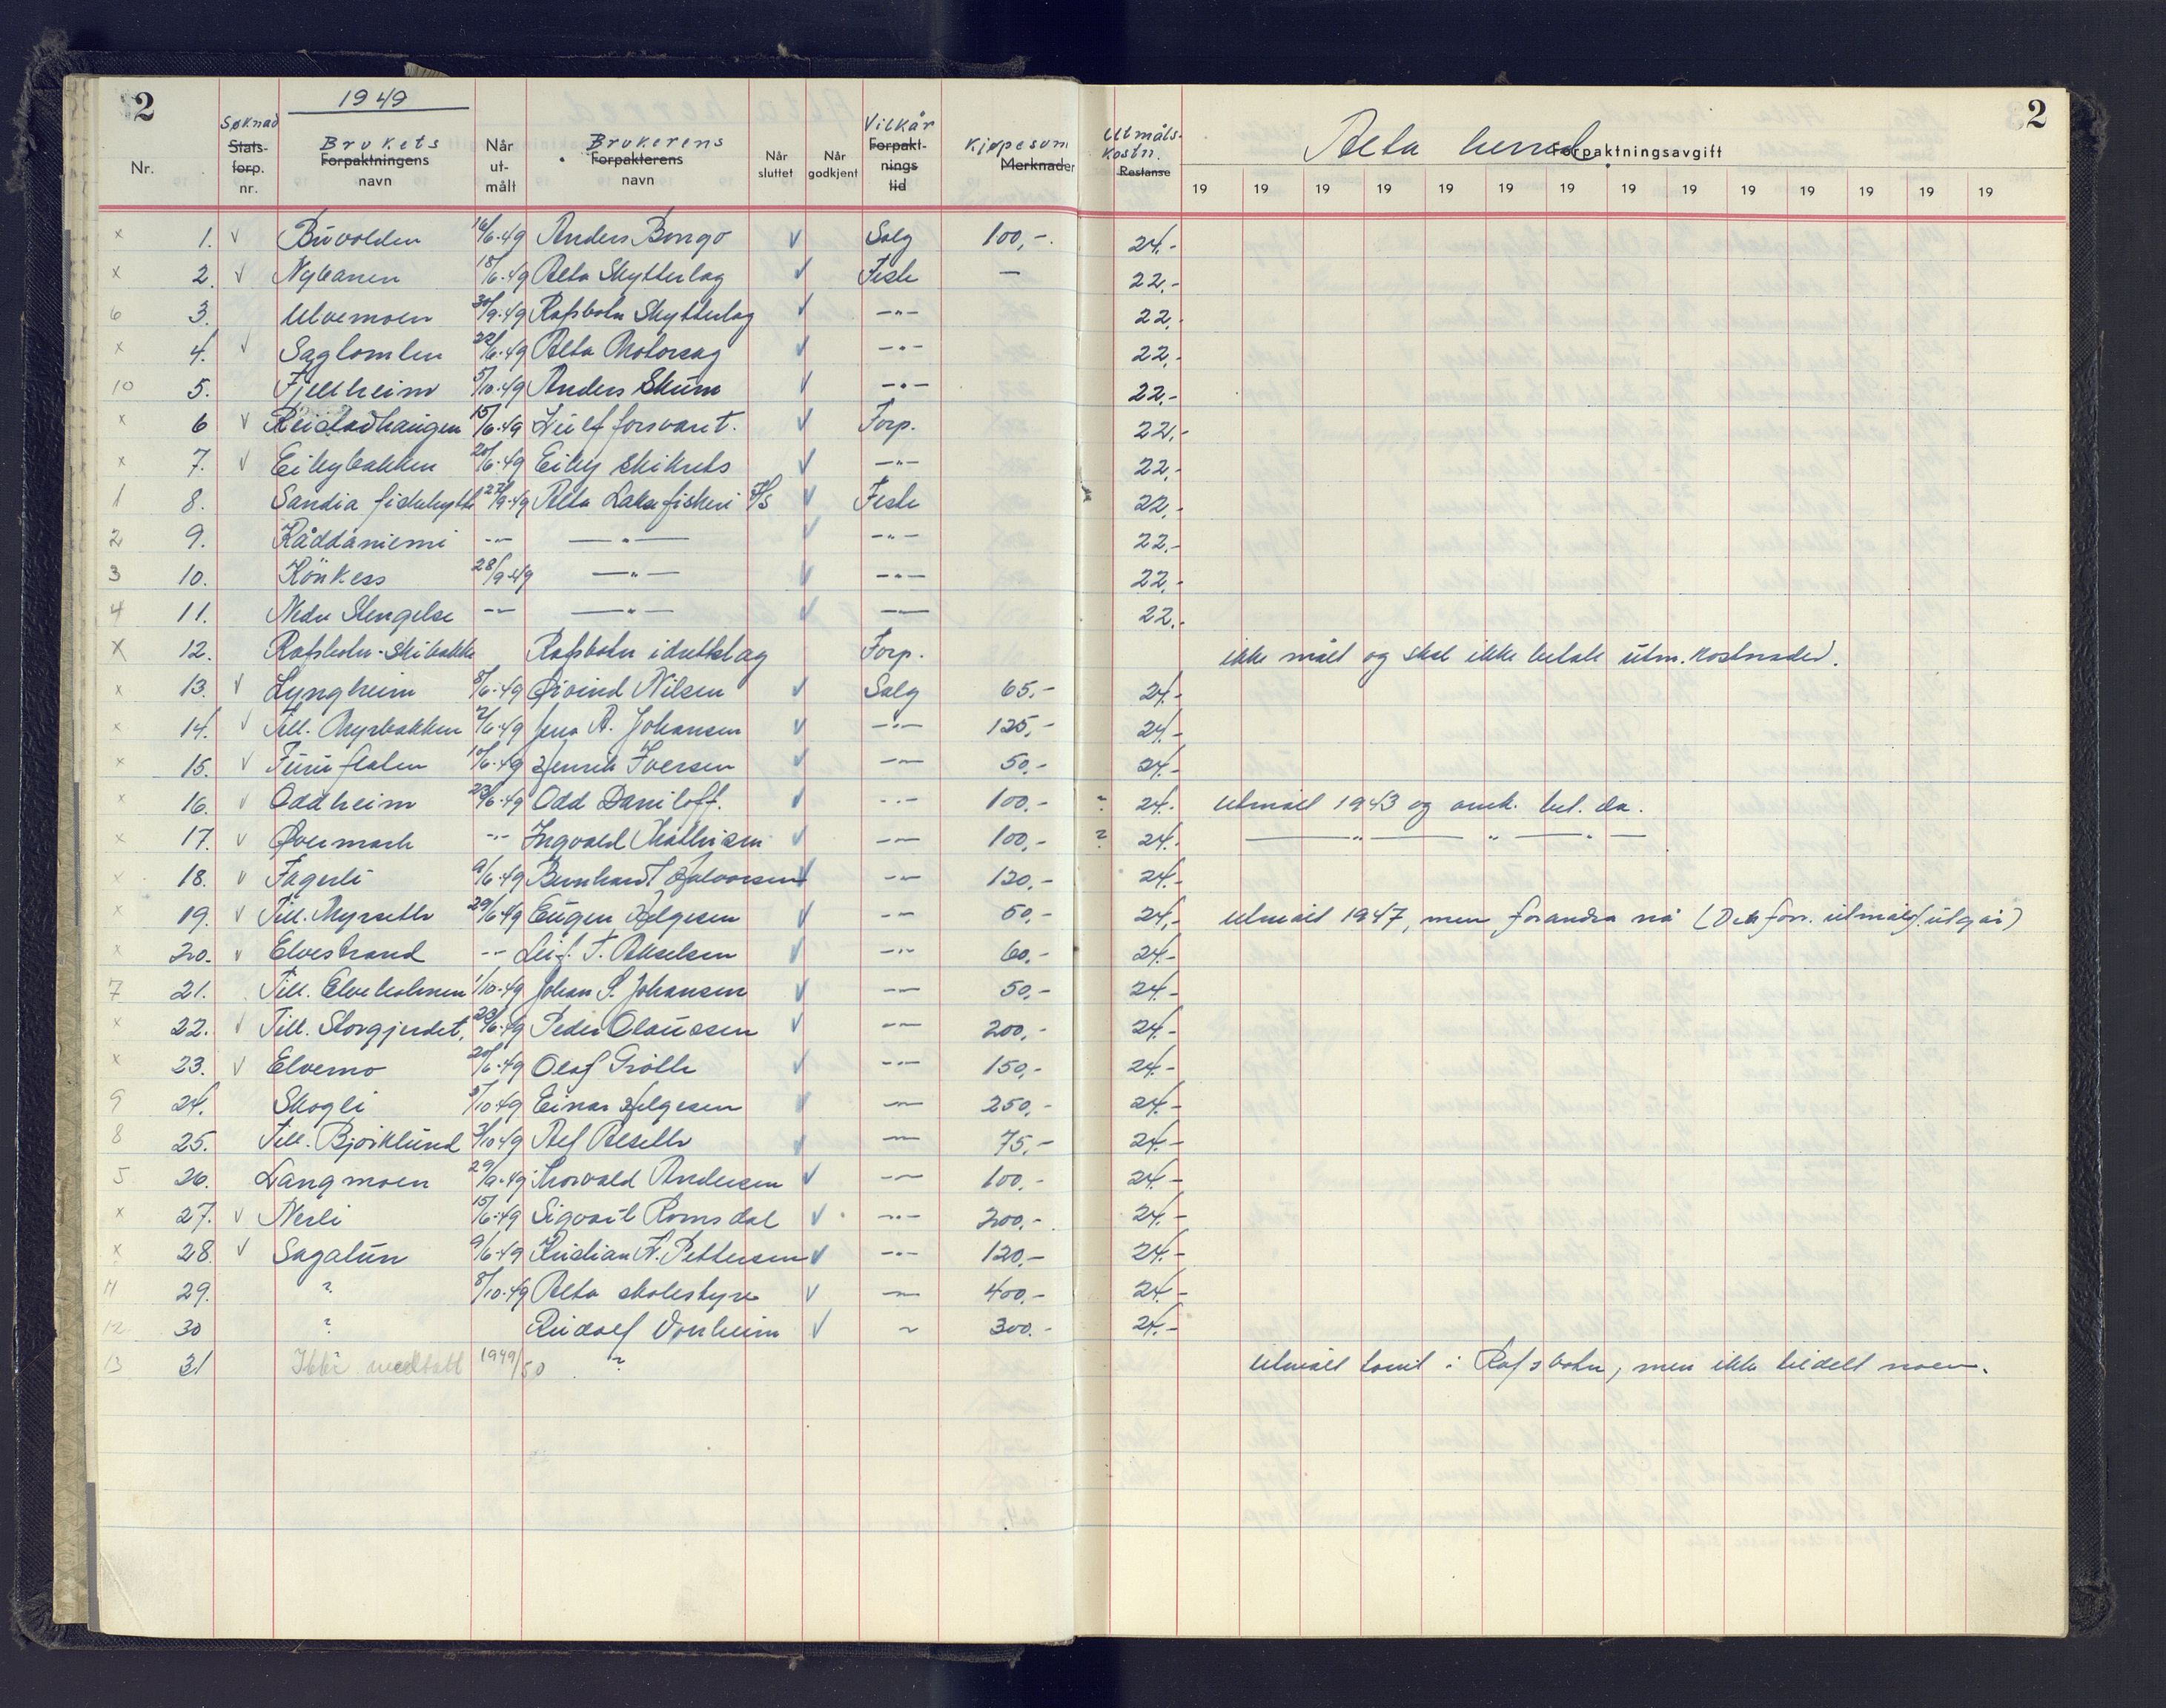 2 1949 2
Alta herred
Nr. Søknad Stats-forp. nr. Brukets Forpaktningens navn Når ut-målt Brukerens Forpakterens navn Når sluttet Når godkjent Vilkår Forpakt-nings tid Kjøpesum Merknader Utmåls-kostn. Restanse Forpaktningsavgift
19 19 19 19 19 19 19 19 19 19 19 19 19 19
x 1. v Buvolden 16/6-49 Anders Bongo v Salg 100,- 24.-
x 2. v Nybanen 18/6-49 Alta Skytterlag v Feste — 22.-
6 3. Ulvemoen 30/9-49 Rafsbotn Skytterlag v —"— 22.-
x 4. v Sagtomten 22/6-49 Alta Motorsag v —"— 22.-
10 5. Fjellheim 5/10-49 Anders Skum v —"— 22.-
x 6 v 15/6-49 forsvaret. v Forp. 22.-
x 7. v Eibybakken 20/6-49 Eiby skikrets v —"— 22.-
1 8. Sandia fiskehytte 27/9-49 Alta Laksefiskeri I/S v Feste 22.-
2 9. Råddäniemi -"- —"— v —"— 22.-
3 10. Könkess 28/9-49 —"— v —"— 22.-
4 11. Nedre Stengelse -"- —"— v —"— 22.-
x 12. Rafsbotn-skibakke Rafsbotn idrettslag Forp. ikke målt og skal ikke betale utm. kostnader.
x 13. v Lyngheim 8/6-49 Øivind Nilsen v Salg 65,- 24.-
x 14. v Till. Myrbakken 2/6-49 Jens A. Johansen v —"— 125,- 24.-
x 15. v Furuflaten 10/6-49 Henrik Iversen v —"— 50.- 24.-
x 16. v Oddheim 23/6-49 Odd Daniloff. v —"— 100.- ? 24.- utmålt 1943 og omk. bet. da.
x 17. v Øvermark -"- Ingvald Mathisen v —"— 100,- ? 24.- —"— " —"—
x 18. v Fagerli 9/6-49 Bernhardt Halvorsen v —"— 120,- 24.-
x 19. v Till. Myrseth 29/6-49 Eugen Helgesen v —"— 50,- 24.- utmålt 1947, men forandra nå (Den forr. utmåling utgår)
x 20. v Elvestrand -"- Leif. T. Akselsen v —"— 60.- 24.-
7 21. Till. Elveholmen 1/10-49 Johan S. Johansen v —"— 50,- 24.-
x 22. v Till. Storgjerdet, 23/6-49 Peder Olaussen v —"— 200,- 24.-
x 23. v Elvemo 20/6-49 Olaf v —"— 150,- 24.-
9 24. Skogli 5/10-49 Einar Helgesen v —"— 250,- 24.-
8 25. Till. Bjørklund 3/10-49 v —"— 75,- 24.-
5 26. Langmoen 29/9-49 Thorvald Andersen v —"— 100.- 24.-
x 27. v Nesli 15/6-49 Sigvart Romsdal v —"— 200.- 24.-
x 28. v Sagatun 9/6-49 Kristian A. Pettersen v —"— 120,- 24.-
11 29. ? 8/10-49 Alta skolestyre v —"— 400,- 24.-
12 30 ? Rudolf Vonheim v ~ 300.- 24.-
13 31 Ikke medtatt 1949/50 ? utmålt tomt i Rafsbotn, men ikke tildelt noen.